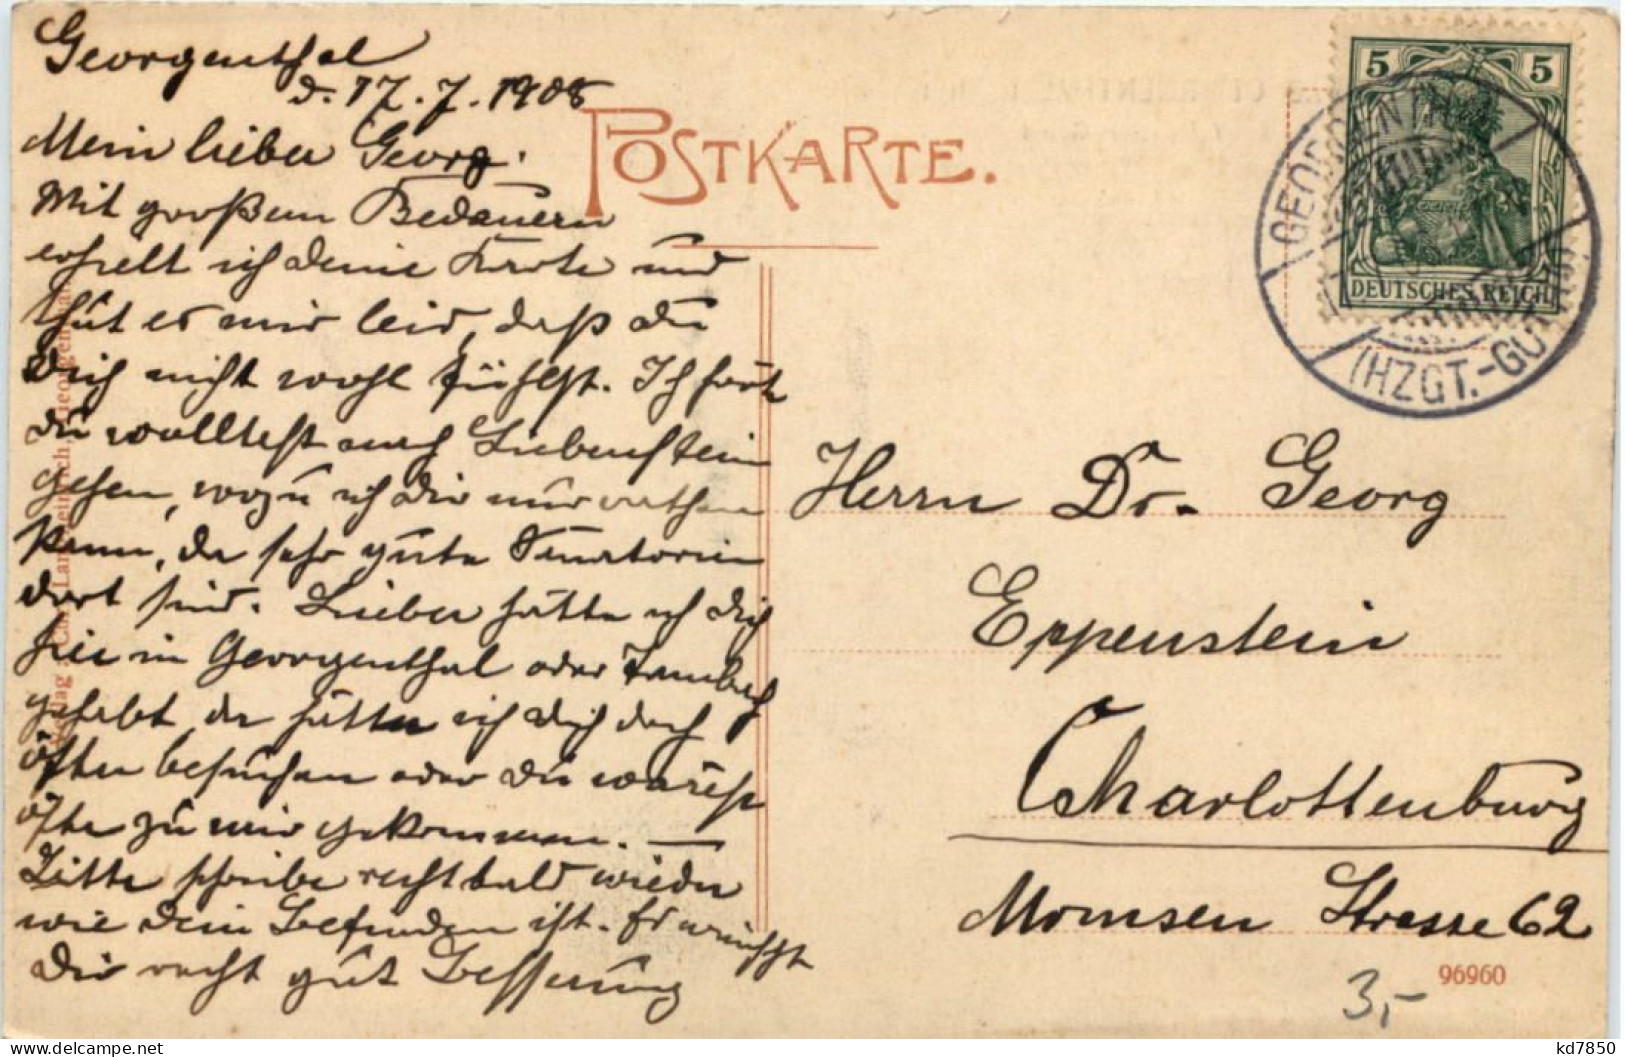 Georgenthal
d. 17.7.1908
Mein lieber Georg.
Mit großem Bedauern
erhielt ich deine Karte und
thut es mir leid, daß du
Dich nicht wohl fühlst. Ich
du wolltest nach Liebenstein
gehen, wozu ich dir nur rathen
kann, da sehr gute Sanatorien
dort sind. Lieber hätte ich dich
hier in Georgenthal oder Tambach
gehabt da hätte ich dich doch
öfter besuchen oder du wärest
öfter zu mir gekommen. —
Bitte schreibe recht bald wieder
wie dein Befinden ist. Es wünscht
Dir recht gut Besserung
POSTKARTE.
5 5
DEUTSCHES REICH
GEORGENTHAL
(HZGT.-GOTHA)
Herrn Dr. Georg
Eppenstein
Charlottenburg
Momsen Strasse 62
96960
3,-
kd7850